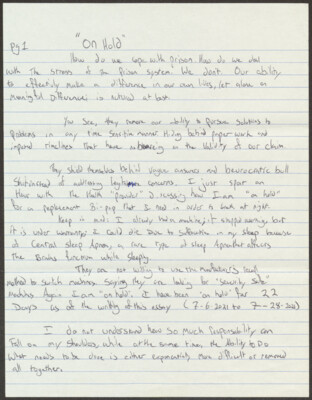 Pg 1
"On Hold"
How do we cope with prison. How do we deal
with the stress of the prison system? We don't. Our ability
to effectively make a difference in our own lives, let alone a
meaningful difference, is at best.
You see, they remove our ability to pursue solutions to
problems in any time sensitive manner. Hiding behind paper work and
timelines that have no bearing on the of our claim.
They shield themselves behind vague answers and beurocratic bull
shit instead of addressing legitimate concerns. I just spent an
hour with the Health "provider" discussing how I am "on hold"
for a replacement Bi-pap that I need in order to breath at night.
Keep in mind I already had a machine, it stopped working, but
it is under warranty. I could die due to suffocation in my sleep because
of Central Sleep Apnea, a rare type of sleep apnea that affects
the Brains function while sleeping.
They are not willing to use the manufacturers
method to switch machines. Saying they are looking for "security safe"
modulas. Again I am "on hold". I have been "on hold" for 22
Days as of the writing of this essay (7-6-2021 to 7-28-2021)
I do not understand how so much responsibility can
Fall on my shoulders, while at the same time, the Ability to Do
What needs to be done is either exponentially more difficult or removed
all together.